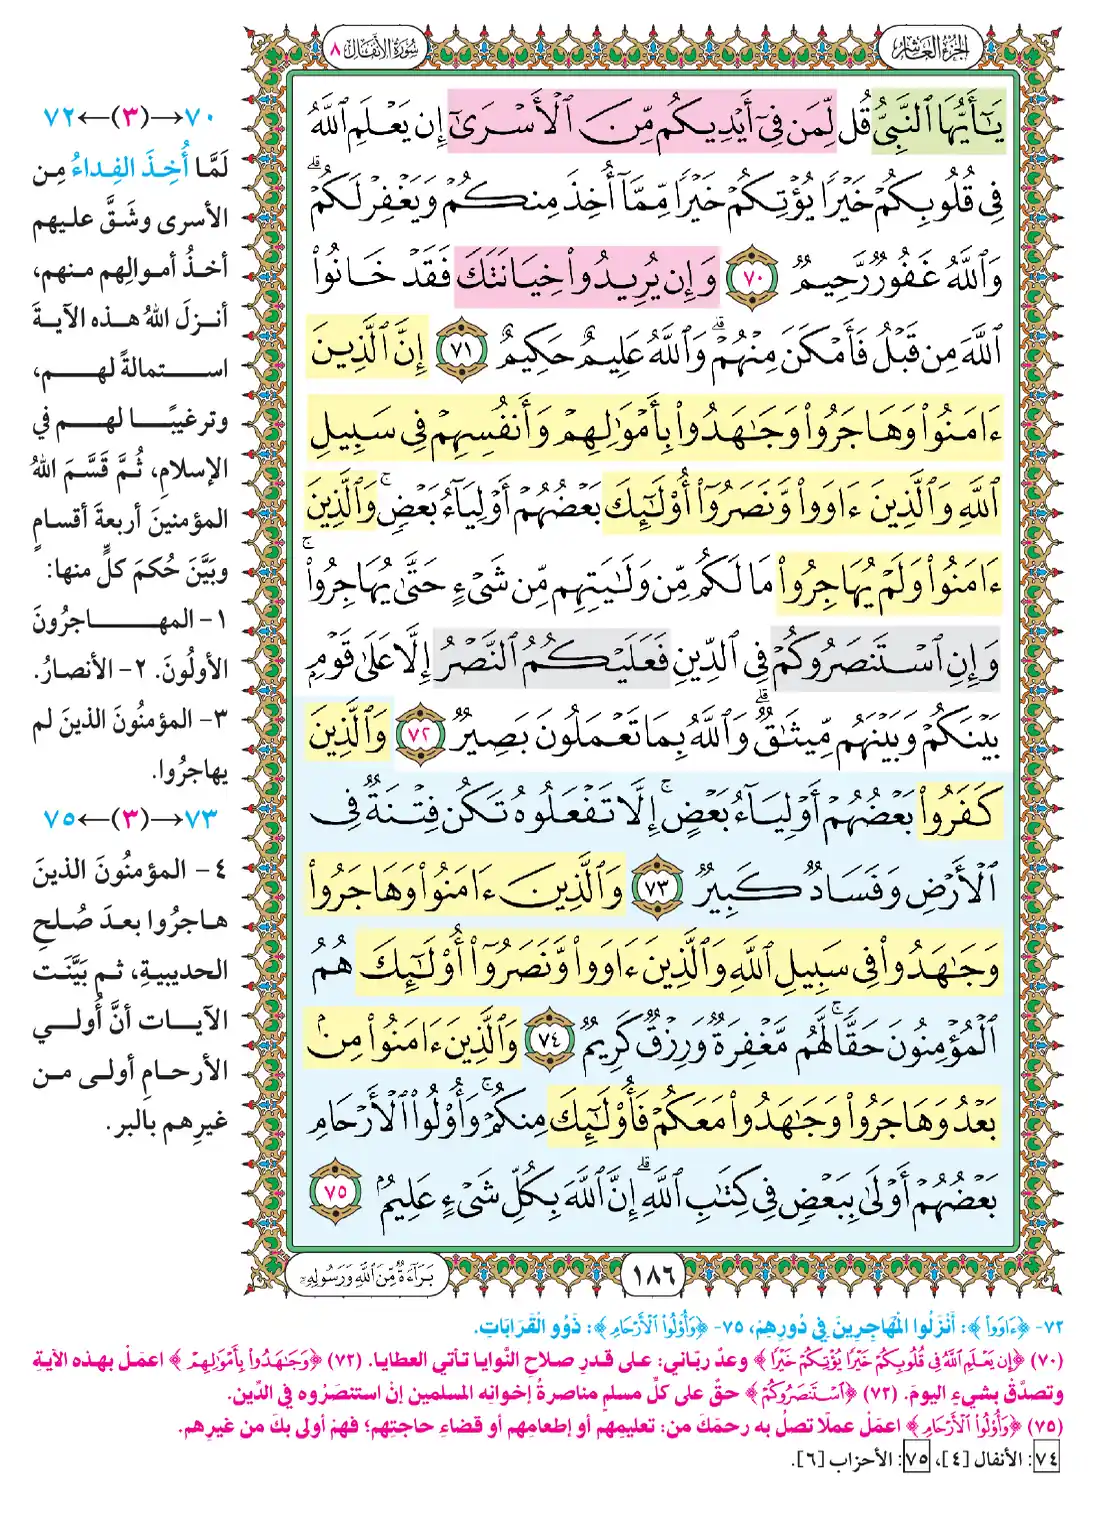 الجزء العاشر
سورة الأنفال ٨
يَٰٓأَيُّهَا ٱلنَّبِىُّ قُل لِّمَن فِىٓ أَيْدِيكُم مِّنَ ٱلْأَسْرَىٰٓ إِن يَعْلَمِ ٱللَّهُ
فِى قُلُوبِكُمْ خَيْرًا يُؤْتِكُمْ خَيْرًا مِّمَّآ أُخِذَ مِنكُمْ وَيَغْفِرْ لَكُمْ ۗ
وَٱللَّهُ غَفُورٌ رَّحِيمٌ ٧٠ وَإِن يُرِيدُوا۟ خِيَانَتَكَ فَقَدْ خَانُوا۟
ٱللَّهَ مِن قَبْلُ فَأَمْكَنَ مِنْهُمْ ۗ وَٱللَّهُ عَلِيمٌ حَكِيمٌ ٧١ إِنَّ ٱلَّذِينَ
ءَامَنُوا۟ وَهَاجَرُوا۟ وَجَٰهَدُوا۟ بِأَمْوَٰلِهِمْ وَأَنفُسِهِمْ فِى سَبِيلِ
ٱللَّهِ وَٱلَّذِينَ ءَاوَوا۟ وَّنَصَرُوٓا۟ أُو۟لَٰٓئِكَ بَعْضُهُمْ أَوْلِيَآءُ بَعْضٍ ۚ وَٱلَّذِينَ
ءَامَنُوا۟ وَلَمْ يُهَاجِرُوا۟ مَا لَكُم مِّن وَلَٰيَتِهِم مِّن شَىْءٍ حَتَّىٰ يُهَاجِرُوا۟ ۚ
وَإِنِ ٱسْتَنصَرُوكُمْ فِى ٱلدِّينِ فَعَلَيْكُمُ ٱلنَّصْرُ إِلَّا عَلَىٰ قَوْمٍۭ
بَيْنَكُمْ وَبَيْنَهُم مِّيثَٰقٌ ۗ وَٱللَّهُ بِمَا تَعْمَلُونَ بَصِيرٌ ٧٢ وَٱلَّذِينَ
كَفَرُوا۟ بَعْضُهُمْ أَوْلِيَآءُ بَعْضٍ ۚ إِلَّا تَفْعَلُوهُ تَكُن فِتْنَةٌ فِى
ٱلْأَرْضِ وَفَسَادٌ كَبِيرٌ ٧٣ وَٱلَّذِينَ ءَامَنُوا۟ وَهَاجَرُوا۟
وَجَٰهَدُوا۟ فِى سَبِيلِ ٱللَّهِ وَٱلَّذِينَ ءَاوَوا۟ وَّنَصَرُوٓا۟ أُو۟لَٰٓئِكَ هُمُ
ٱلْمُؤْمِنُونَ حَقًّا ۚ لَّهُم مَّغْفِرَةٌ وَرِزْقٌ كَرِيمٌ ٧٤ وَٱلَّذِينَ ءَامَنُوا۟ مِنۢ
بَعْدُ وَهَاجَرُوا۟ وَجَٰهَدُوا۟ مَعَكُمْ فَأُو۟لَٰٓئِكَ مِنكُمْ ۚ وَأُو۟لُوا۟ ٱلْأَرْحَامِ
بَعْضُهُمْ أَوْلَىٰ بِبَعْضٍ فِى كِتَٰبِ ٱللَّهِ ۗ إِنَّ ٱللَّهَ بِكُلِّ شَىْءٍ عَلِيمٌۢ ٧٥
١٨٦
بَرَآءَةٌ مِّنَ ٱللَّهِ وَرَسُولِهِۦٓ
٧٠→(٣)←٧٢
لَمَّا أُخِذَ الفِداءُ مِن
الأسرى وشَقَّ عليهم
أخذُ أموالِهم منهم،
أنزلَ اللهُ هذه الآيةَ
استمالةً لهم،
وترغيبًا لهم في
الإسلامِ، ثُمَّ قَسَّمَ اللهُ
المؤمنينَ أربعةَ أقسامٍ
وبَيَّنَ حُكمَ كلٍّ منها:
١- المهاجرُونَ
الأولُونَ. ٢- الأنصارُ.
٣- المؤمنُونَ الذينَ لم
يهاجرُوا.
٧٣→(٣)←٧٥
٤- المؤمنُونَ الذينَ
هاجرُوا بعدَ صُلحِ
الحديبيةِ، ثم بَيَّنَت
الآيات أنَّ أُولي
الأرحامِ أولى من
غيرِهم بالبر.
٧٢- ﴿ءَاوَوا۟﴾: أَنْزَلُوا الْمُهَاجِرِينَ فِي دُورِهِمْ، ٧٥- ﴿وَأُو۟لُوا۟ ٱلْأَرْحَامِ﴾: ذَوُو الْقَرَابَاتِ.
(٧٠) ﴿إِن يَعْلَمِ ٱللَّهُ فِى قُلُوبِكُمْ خَيْرًا يُؤْتِكُمْ خَيْرًا﴾ وعدٌ ربّاني: على قدرِ صلاحِ النَّوايا تأتي العطايا. (٧٢) ﴿وَجَٰهَدُوا۟ بِأَمْوَٰلِهِمْ﴾ اعملْ بهذه الآيةِ
وتصدَّقْ بشيءٍ اليومَ. (٧٢) ﴿ٱسْتَنصَرُوكُمْ﴾ حقٌّ على كلِّ مسلمٍ مناصرةُ إخوانِه المسلمين إنْ استنصَرُوه في الدِّين.
(٧٥) ﴿وَأُو۟لُوا۟ ٱلْأَرْحَامِ﴾ اعملْ عملًا تصلُ به رحمَكَ من: تعليمِهم أو إطعامِهم أو قضاءِ حاجتِهم؛ فهمْ أولى بكَ من غيرِهم.
٧٤: الأنفال [٤]، ٧٥: الأحزاب [٦].